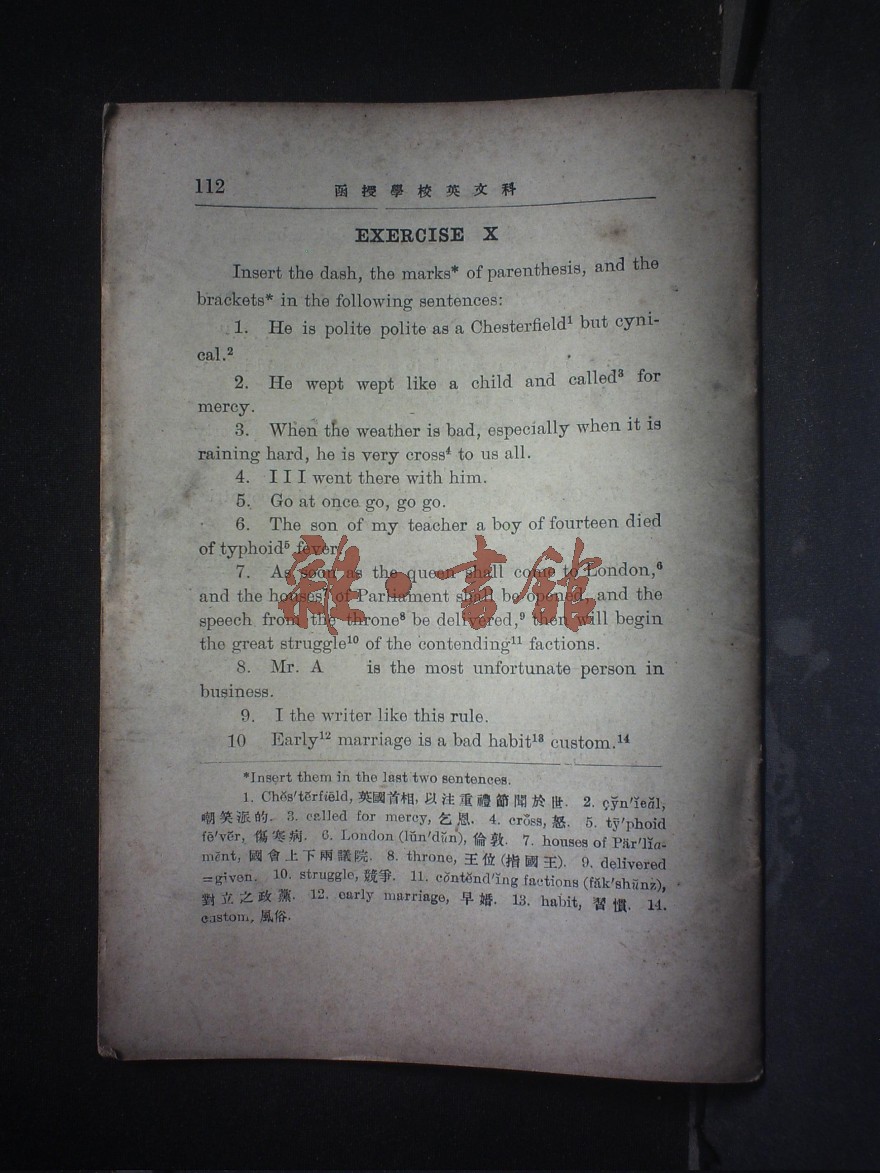 112 函授學校英文科
EXERCISE X
Insert the dash, the marks* of parenthesis, and the
brackets* in the following sentences:
1. He is polite polite as a Chesterfield¹ but cyni-
cal.²
2. He wept wept like a child and called³ for
mercy.
3. When the weather is bad, especially when it is
raining hard, he is very cross⁴ to us all.
4. I I I went there with him.
5. Go at once go, go go.
6. The son of my teacher a boy of fourteen died
of typhoid⁵ fever.
7. As soon as the queen shall come to London,⁶
and the houses⁷ of Parliament shall be opened, and the
speech from the throne⁸ be delivered,⁹ then will begin
the great struggle¹⁰ of the contending¹¹ factions.
8. Mr. A is the most unfortunate person in
business.
9. I the writer like this rule.
10 Early¹² marriage is a bad habit¹³ custom.¹⁴
*Insert them in the last two sentences.
1. Chĕs′tẽrfīeld, 英國首相, 以注重禮節聞於世. 2. çy̆n′ĭcăl,
嘲笑派的. 3. called for mercy, 乞恩. 4. cross, 怒. 5. tȳ′phoid
fē′vẽr, 傷寒病. 6. London (lŭn′dŭn), 倫敦. 7. houses of Pär′lĭa-
mĕnt, 國會上下兩議院. 8. throne, 王位 (指國王). 9. delivered
=given. 10. struggle, 競爭. 11. cŏntĕnd′ĭng factions (făk′shŭnz),
對立之政黨. 12. early marriage, 早婚. 13. habit, 習慣. 14.
custom, 風俗.
雜·書館